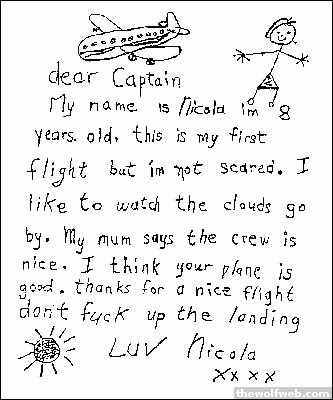 dear Captain
My name is Nicola im 8
years. old, this is my first
flight but im not scared. I
like to watch the clouds go
by. My mum says the crew is
nice. I think your plane is
good. thanks for a nice flight
don't fuck up the landing
LUV Nicola
xxxx
thewolfweb.com